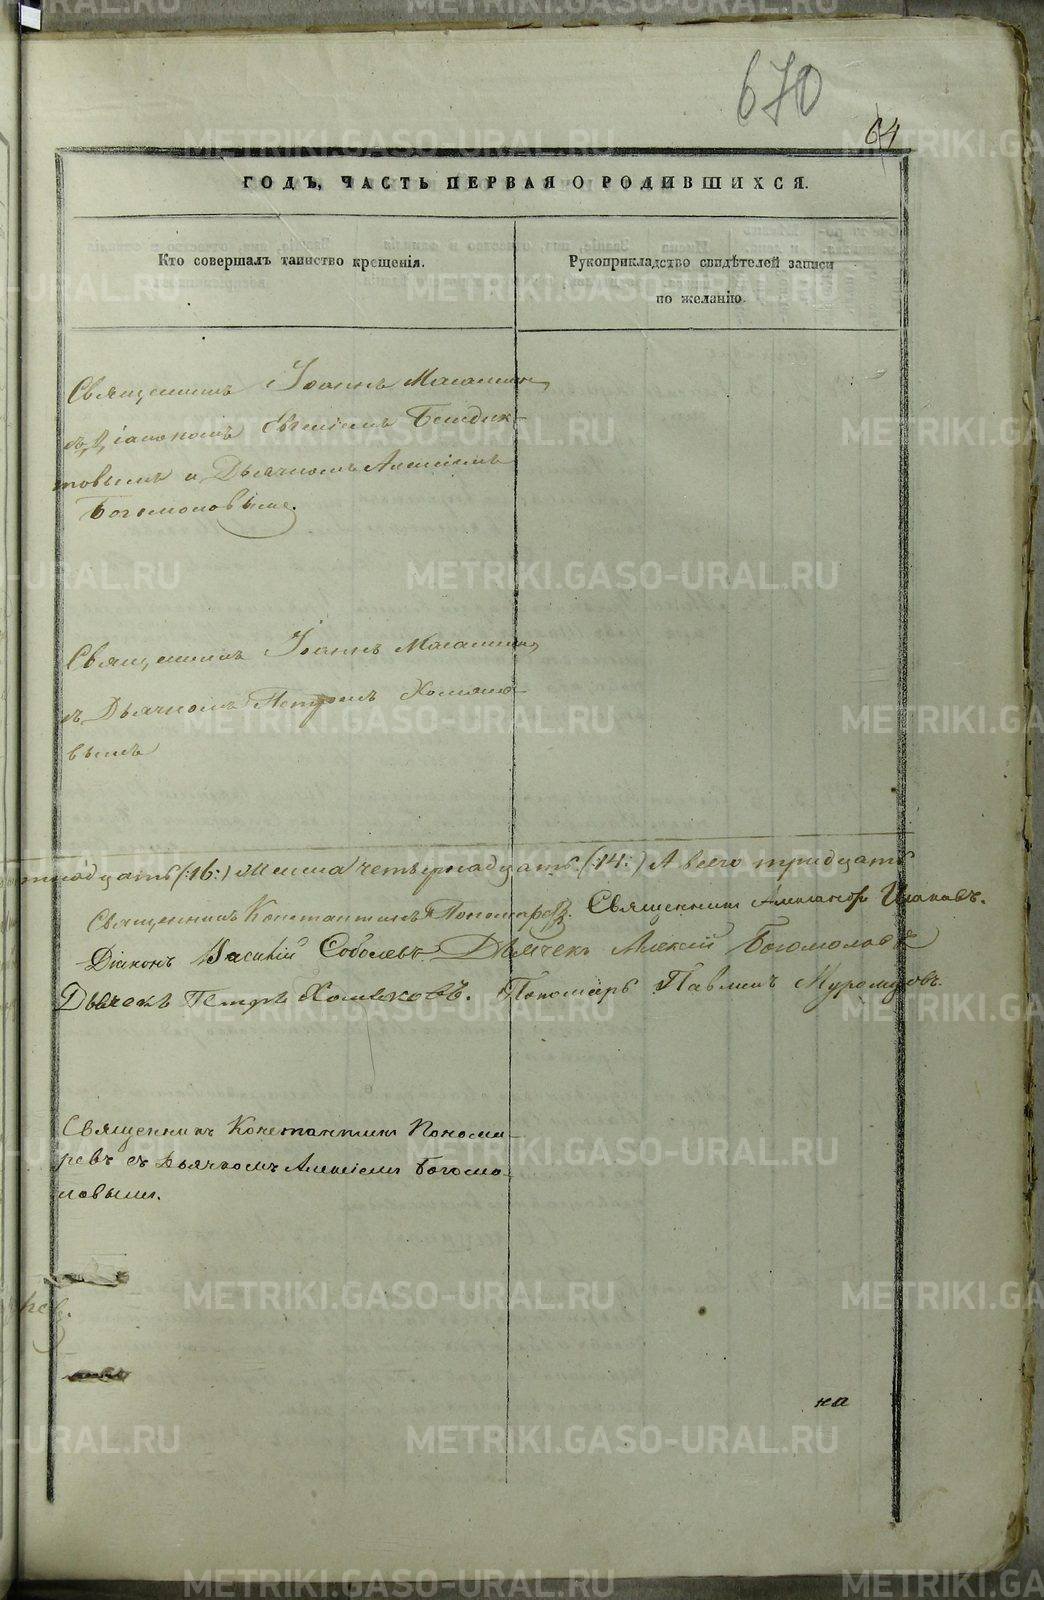 670
64
ГОДЪ, ЧАСТЬ ПЕРВАЯ О РОДИВШИХСЯ.
Кто совершалъ таинство крещенія.
Рукоприкладство свидѣтелей записи
по желанію.
Священникъ Іоаннъ
съ Діакономъ Евгеніемъ Бенедик-
товымъ и Дьячкомъ Алексіемъ
Богомоловымъ.
Священникъ Іоаннъ
съ Дьячкомъ Петромъ Хомяко-
вымъ
надцать (:16:) женска четырнадцать (:14:) А всего тридцать
Священникъ Константинъ Пономаревъ. Священникъ Александръ
Діаконъ Василій Соболевъ. Дьячекъ Алексій Богомоловъ
Дьячекъ Петръ Хомяковъ. Пономарь Павлинъ Муромцовъ.
Священникъ Константинъ Понома-
ревъ съ Дьячкомъ Алексіемъ Богомо-
ловымъ.
на
METRIKI.GASO-URAL.RU